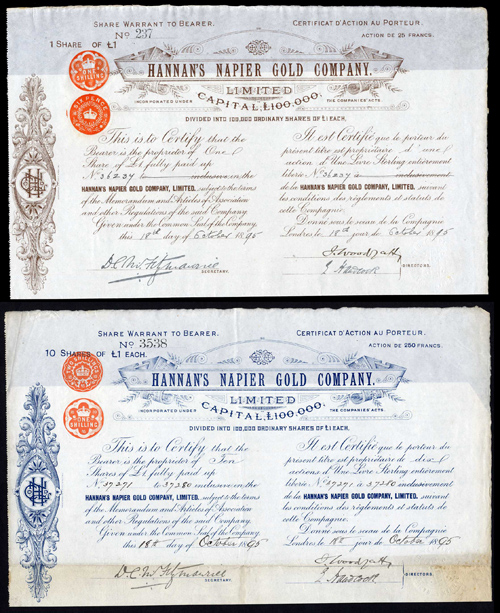 SHARE WARRANT TO BEARER. CERTIFICAT D'ACTION AU PORTEUR.
No 237
1 SHARE OF £1 ACTION DE 25 FRANCS.
ONE SHILLING
HANNAN'S NAPIER GOLD COMPANY.
LIMITED
SIX PENCE
INCORPORATED UNDER CAPITAL £100,000. THE COMPANIES' ACTS.
DIVIDED INTO 100,000 ORDINARY SHARES OF £1 EACH.
This is to Certify that the Il est Certifié que le porteur du
Bearer is the proprietor of One présent titre est propriétaire d'une
Share of £1 fully paid up action d'Une Livre Sterling entièrement
No 36237 to inclusive in the libérée No 36237 à inclusivement
HANNAN'S NAPIER GOLD COMPANY, LIMITED, subject to the terms de la HANNAN'S NAPIER GOLD COMPANY, LIMITED, suivant
of the Memorandum and Articles of Association les conditions des règlements et statuts de
and other Regulations of the said Company. cette Compagnie.
Given under the Common Seal of the Company, Donné sous le sceau de la Compagnie
this 18th day of October 1895 Londres le 18th jour de October 1895
SECRETARY. DIRECTORS.
SHARE WARRANT TO BEARER. CERTIFICAT D'ACTION AU PORTEUR.
No 3538
10 SHARES OF £1 EACH. ACTION DE 250 FRANCS.
HANNAN'S NAPIER GOLD COMPANY.
LIMITED
ONE SHILLING
INCORPORATED UNDER CAPITAL £100,000. THE COMPANIES' ACTS.
DIVIDED INTO 100,000 ORDINARY SHARES OF £1 EACH.
This is to Certify that the Il est Certifié que le porteur du
Bearer is the proprietor of Ten présent titre est propriétaire de dix
Shares of £1 fully paid up actions d'Une Livre Sterling entièrement
No 37271 to 37280 inclusive in the libérée No 37271 à 37280 inclusivement
HANNAN'S NAPIER GOLD COMPANY, LIMITED, subject to the terms de la HANNAN'S NAPIER GOLD COMPANY, LIMITED, suivant
of the Memorandum and Articles of Association les conditions des règlements et statuts de
and other Regulations of the said Company. cette Compagnie.
Given under the Common Seal of the Company, Donné sous le sceau de la Compagnie
this 18th day of October 1895 Londres le 18th jour de October 1895
SECRETARY. DIRECTORS.